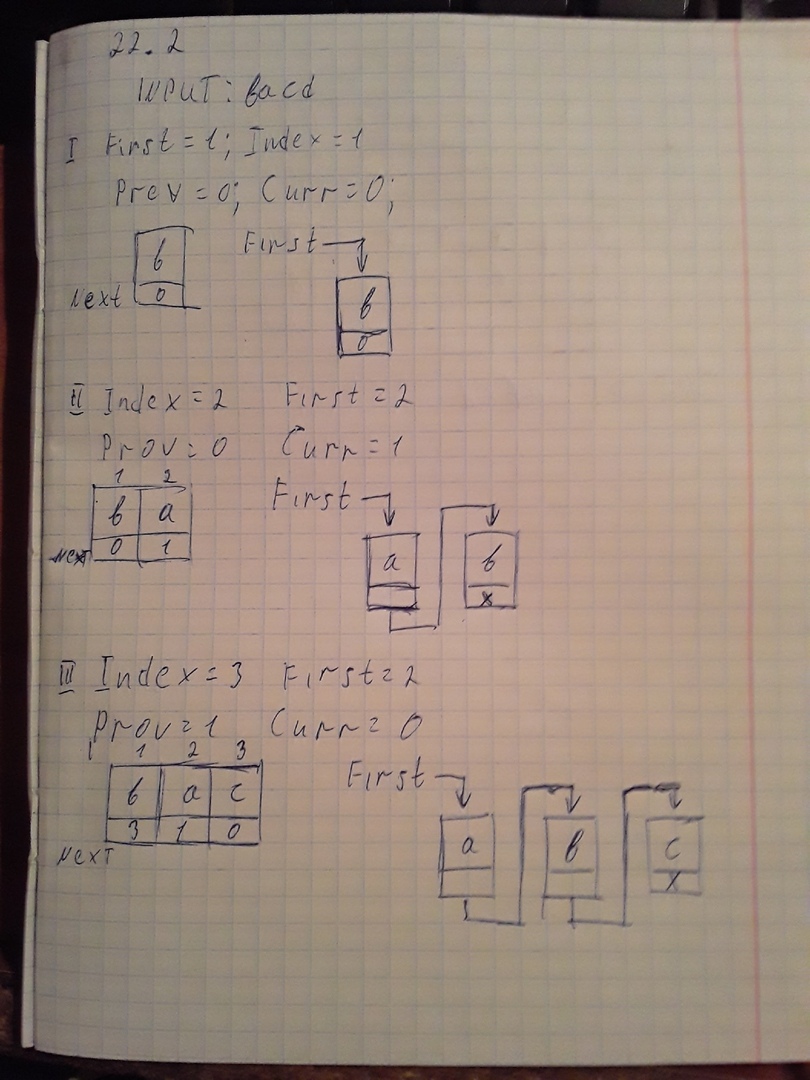 22.2
INPUT: bacd
I First = 1; Index = 1
Prev = 0; Curr = 0;
b
Next 0
First
b
0
II Index = 2 First = 2
Prov = 0 Curr = 1
1 2
b a
Next 0 1
First
a b
x
III Index = 3 First = 2
Prov = 1 Curr = 0
1 2 3
b a c
3 1 0
Next
First
a b c
x